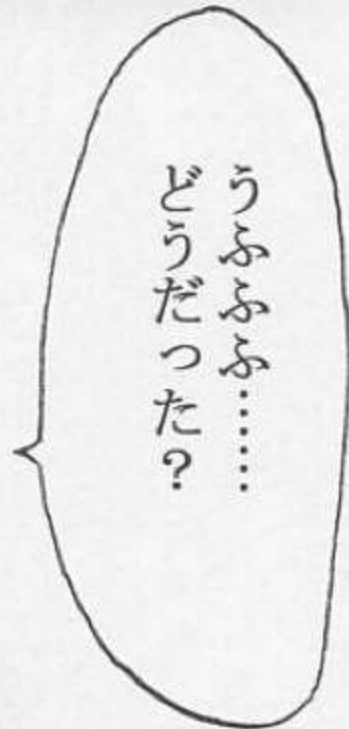 うふふふ……
どうだった?